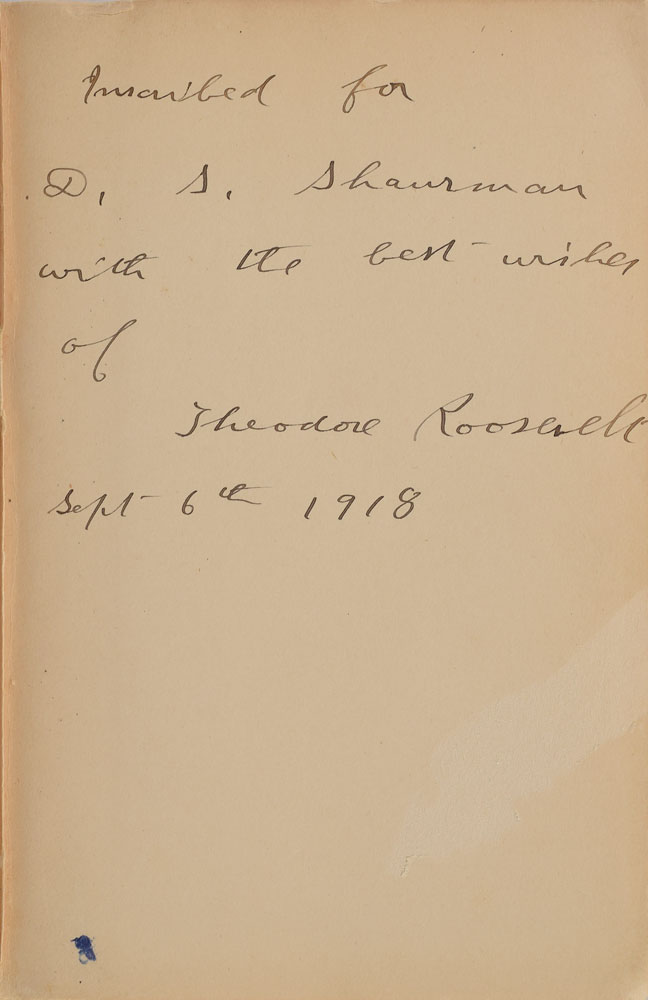 Inscribed for
D. S. Shaurman
with the best wishes
of
Theodore Roosevelt
Sept 6th 1918